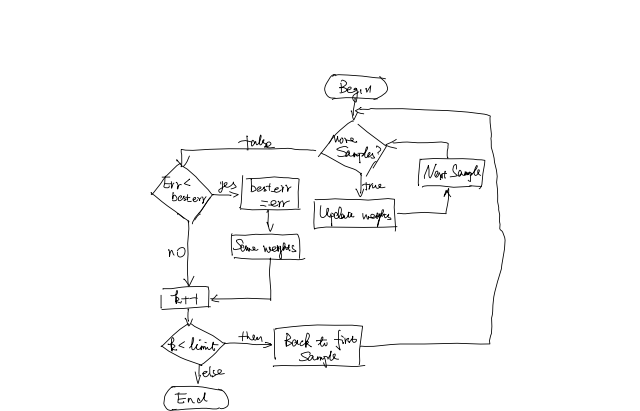 Begin
More
Samples?
false
true
Next Sample
Update weights
Err <
besterr
yes
besterr
= err
no
k++
k < limit
then
Back to first
Sample
else
End